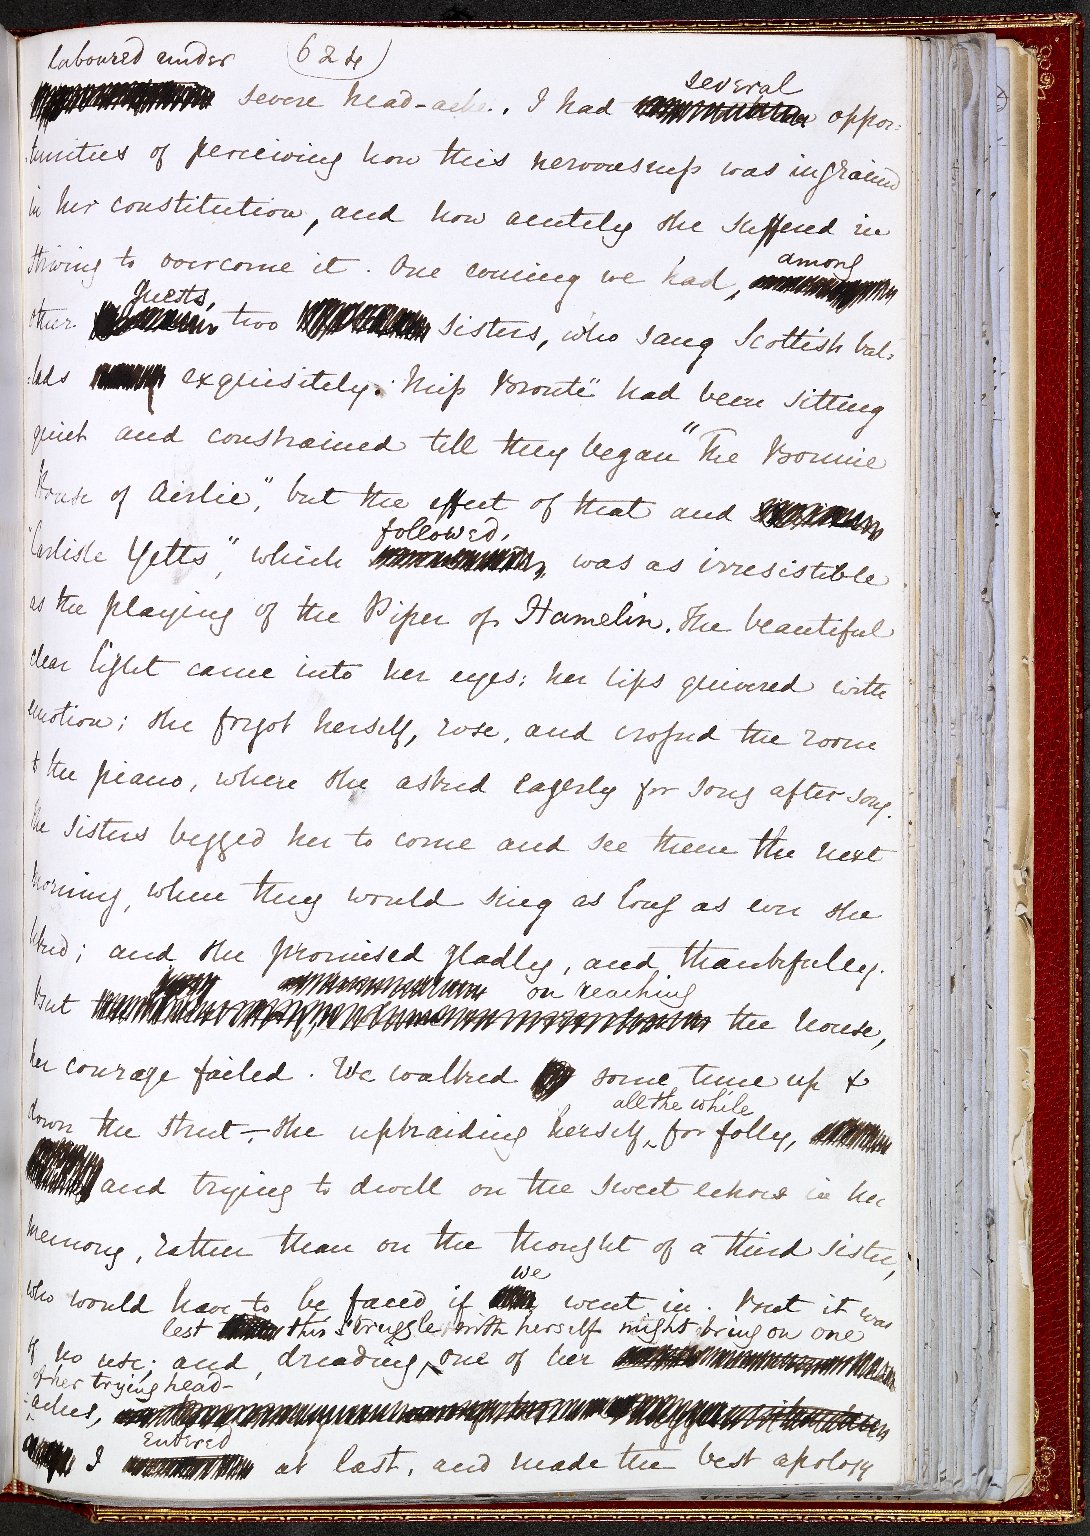 laboured under (624)
severe head-ache. I had several oppor-
tunities of perceiving how this nervousness was ingrained
in her constitution, and how acutely she suffered in
striving to overcome it. One evening we had, among
other guests, two sisters, who sang Scottish bal-
lads exquisitely. Miss Brontë had been sitting
quiet and constrained till they began "The Bonnie
House of Airlie," but the effect of that and
"Carlisle Yetts," which followed, was as irresistible
as the playing of the Piper of Hamelin. The beautiful
clear light came into her eyes; her lips quivered with
emotion; she forgot herself, rose, and crossed the room
to the piano, where she asked eagerly for song after song.
The sisters begged her to come and see them the next
morning, when they would sing as long as ever she
liked; and she promised gladly, and thankfully.
But on reaching the house,
her courage failed. We walked some time up &
down the street;—she upbraiding herself all the while for folly,
and trying to dwell on the sweet echoes in her
memory, rather than on the thought of a third sister,
who would have to be faced if we went in. But it was
of no use; and, dreading lest this struggle with herself might bring on one
of her trying head-
-aches,
I entered at last, and made the best apology